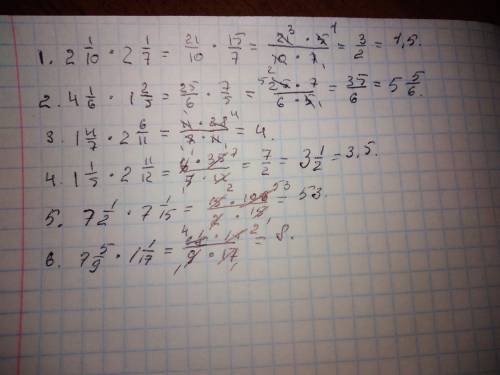 1. 2 1/10 · 2 1/7 = 21/10 · 15/7 = 21 · 5 / 10 · 7 = 3/2 = 1,5.
2. 4 1/6 · 1 2/5 = 25/6 · 7/5 = 25 · 7 / 6 · 5 = 35/6 = 5 5/6.
3. 1 4/7 · 2 6/11 = 11 · 28 / 7 · 11 = 4.
4. 1 1/5 · 2 11/12 = 6 · 35 / 5 · 12 = 7/2 = 3 1/2 = 3,5.
5. 7 1/2 · 7 1/15 = 15 · 106 / 2 · 15 = 53
6. 7 5/9 · 1 1/17 = 68 · 18 / 9 · 17 = 8.